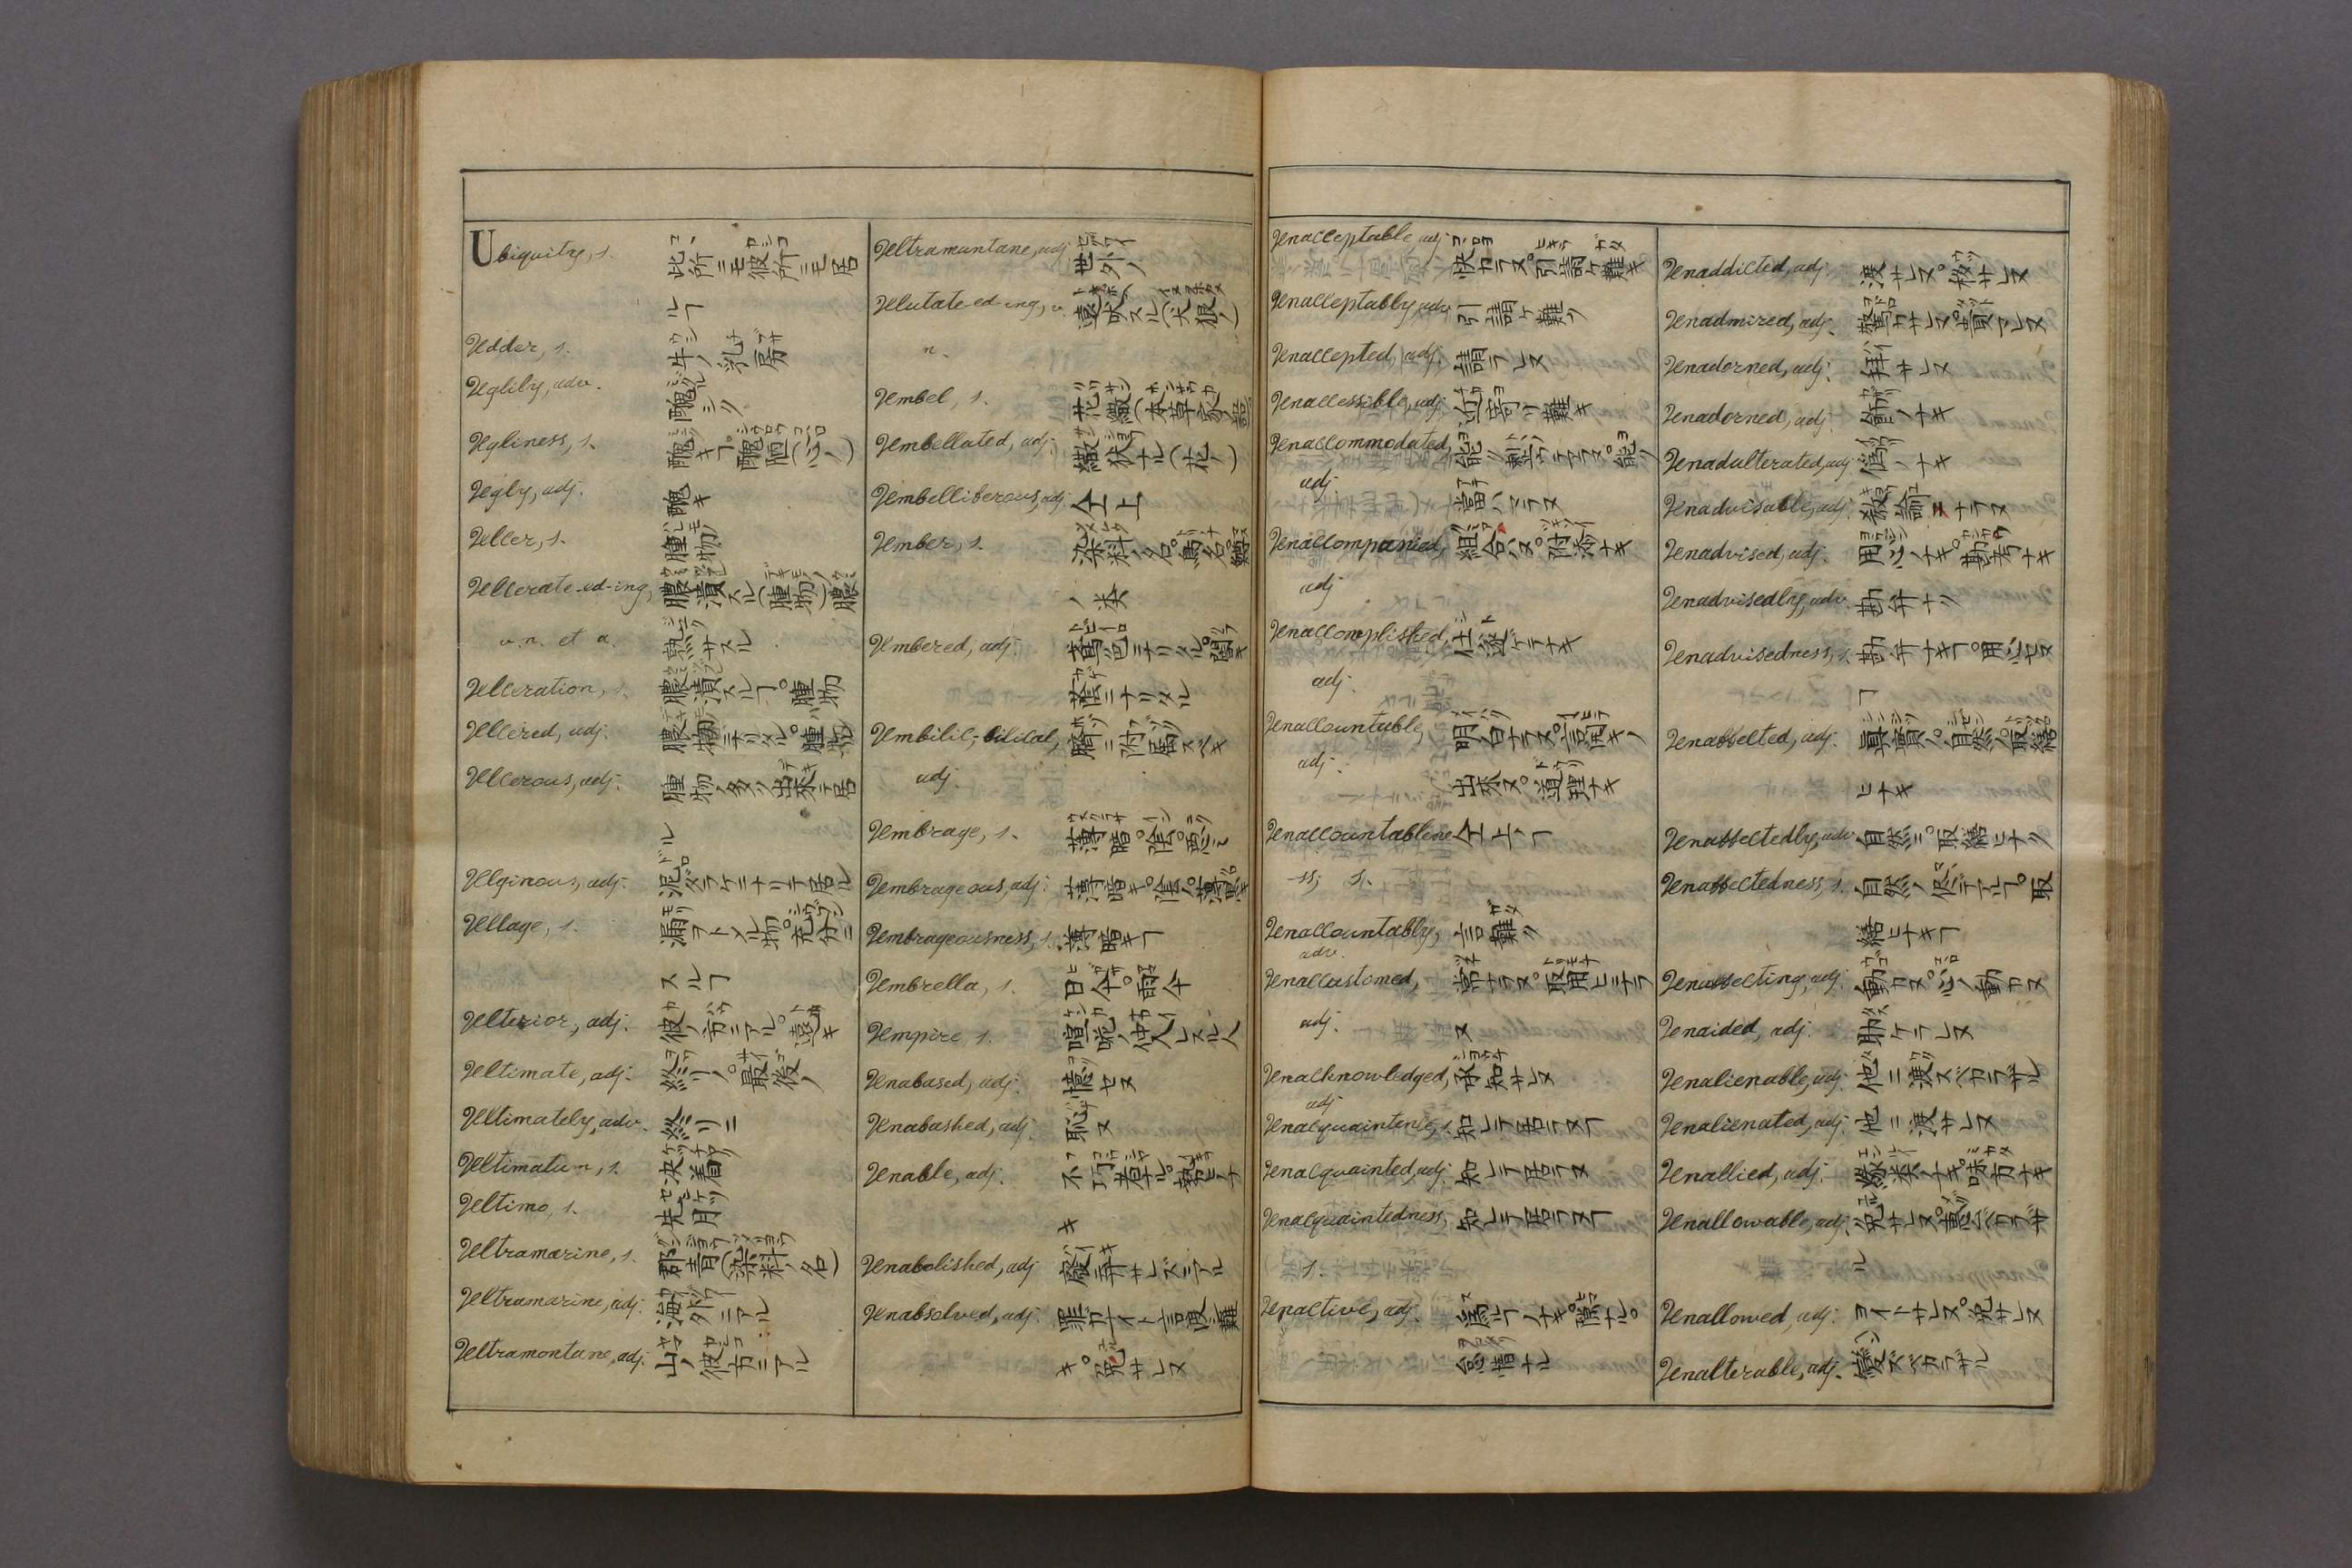 Ubiquity, s. 此所ニモ彼所ニモ居
ルヿ
Udder, s. 牛ノ乳房
Uglily, adv. 醜シク
Ugliness, s. 醜キヿ。醜陋(心ノ)
Ugly, adj. 醜キ
Ulcer, s. 腫物
Ulcerate-ed-ing, 膿潰スル(腫物)膿
v.n. et a. 熟サスル
Ulceration, s. 膿潰スルヿ。腫物
Ulcered, adj. 膿物ニナリタル。腫物
Ulcerous, adj. 腫物ノ多ク出来テ居
ル
Uliginous, adj. 泥ダラケニナリテ居ル
Ullage, s. 漏ヲトメル物。充分ニ
スルヿ
Ulterior, adj. 彼ノ方ニアル。遠キ
Ultimate, adj. 終リノ。最後ノ
Ultimately, adv. 終リニ
Ultimatum, s. 決着
Ultimo, s. 先月
Ultramarine, s. 群青(染料ノ名)
Ultramarine, adj. 海外ニアル
Ultramontane, adj. 山ノ彼方ニアル
Ultramuntane, adj. 世外ノ
Ululate-ed-ing, v. 遠吠スル(犬狼ノ)
n.
Umbel, s. 花繖(本草家ノ語
Umbellated, adj. 繖状ナル(花ノ)
Umbelliberous, adj. 仝上
Umber, s. 染料ノ名。鳥ノ名。鱒
ノ類
Umbered, adj. 色ニナリタル。
ニナリタル
Umbilic,-bilical, 臍ニ附属スベキ
adj.
Umbrage, s. 薄暗。陰。恐レ
Umbrageous, adj. 薄暗キ。陰ノ。薄黒キ
Umbrageousness, s. 薄暗キヿ
Umbrella, s. 日傘。雨傘
Umpire, s. 喧嘩ノ仲人ヒスル人
Unabased, adj. 憶セヌ
Unabashed, adj. 恥ヌ
Unable, adj. 不巧者ナル。勢ヒナ
キ
Unabolished, adj. 廃棄サレズニアル
Unabsolved, adj. 罪ガナイト言ヒ難
キ。免サレヌ
Unacceptable, adj. 快カラヌ。引請ケ難キ
Unacceptably, adv. 引請ケ難ク
Unaccepted, adj. 請ラレヌ
Unaccessible, adj. 近寄リ難キ
Unaccommodated, 能ク整フテヲラヌ。能ク
adj. 當ハマラヌ
Unaccompanied, 組合ハヌ。附添ナキ
adj
Unaccomplished, 仕遂ゲラナキ
adj.
Unaccountable, 明白ナラヌ。言開キノ
adj. 出来ヌ。道理ナキ
Unaccountablene 仝上ノヿ
ss, s.
Unaccountably, 言難ク
adv.
Unaccustomed, 常ナラヌ。取用ヒラ
adj. ヌ
Unacknowledged, 承知サレヌ
adj
Unacquaintence, s. 知レテ居ラヌヿ
Unacquainted, adj. 知レテ居ラヌ
Unacquaintedness, 知レテ居ラヌヿ
s.
Unactive, adj. 為ルヿノナキ。隙ナル。
怠惰ナル
Unaddicted, adj. 渡サレヌ。放サレヌ
Unadmired, adj. 驚カサレヌ。貴マレヌ
Unadorned, adj. 拝サレヌ
Unadorned, adj. 飾ノナキ
Unadulterated, adj. 偽リノナキ
Unadvisable, adj. 教諭ニナラヌ
Unadvised, adj. 用心ノナキ。勘考ナキ
Unadvisedly, adv. 勘弁ナク
Unadvisedness, s. 勘弁ナキヿ。用心セヌ
ヿ
Unaffected, adj. 真実ノ。自然ノ。取繕
ヒナキ
Unaffectedly, adv. 自然ニ。取繕ヒナク
Unaffectedness, s. 自然ノ侭デアルヿ。取
繕ヒナキヿ
Unaffecting, adj. 動カヌ。心ノ動カヌ
Unaided, adj. 助ケラレヌ
Unalienable, adj. 他ニ渡スベカラザル
Unalienated, adj. 他ニ渡サレヌ
Unallied, adj. 縁类ノナキ。味方ナキ
Unallowable, adj. 免サレヌ。意ベカラザ
ル
Unallowed, adj. ヨイトサレヌ。免サレヌ
Unalterable, adj. 變ズベカラザル